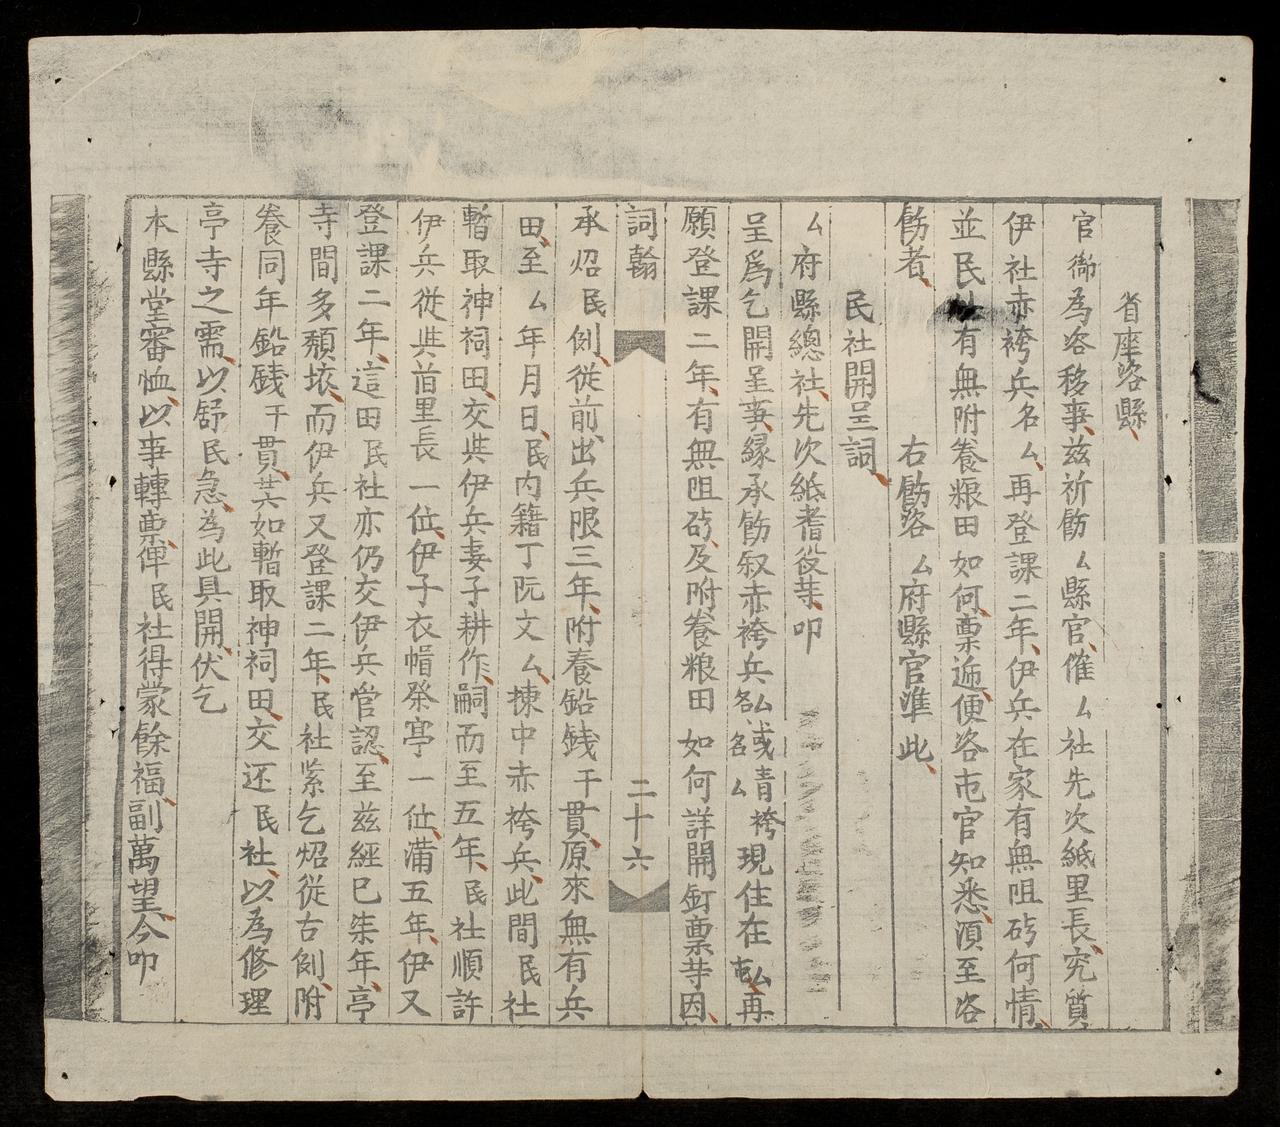 省座咨縣
官衙為咨移事茲祈飭厶縣官催厶社先次紙里長究質
伊社赤袴兵名厶再登課二年伊兵在家有無咀碍何情
並民社有無附養粮田如何稟遞便咨屯官知悉湏至咨
飭者
右飭咨厶府縣官準此
民社開呈詞
厶府縣總社先次紙耆役䓁叩
呈爲乞開呈事縁承飭叙赤袴兵名厶或青袴名厶現住在屯厶再
願登課二年有無咀碍及附養粮田如何詳開釘稟䓁因
詞翰
二十六
承炤民例從前出兵限三年附養鉛銭干貫原來無有兵
田至厶年月日民内籍丁阮文厶揀中赤袴兵此間民社
暫取神祠田交與伊兵妻子耕作嗣而至五年民社順許
伊兵從與首里長一位伊子衣帽祭亭一位滿五年伊又
登課二年這田民社亦仍交伊兵管認至茲經已柒年亭
寺間多頹垓而伊兵又登課二年民社紊乞炤從古例附
養同年鉛銭干貫其如暫取神祠田交还民社以為修理
亭寺之需以舒民急為此具開伏乞
本縣堂審恤以事轉稟俾民社得蒙餘福副萬望今叩